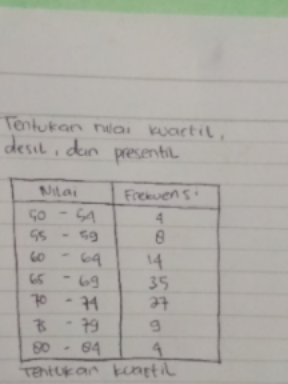 Tentukan nilai kuartil,
desil, dan presentil
Nilai Frekuensi
50 - 54 4
55 - 59 8
60 - 64 14
65 - 69 35
70 - 74 27
75 - 79 9
80 - 84 4
Tentukan kuartil